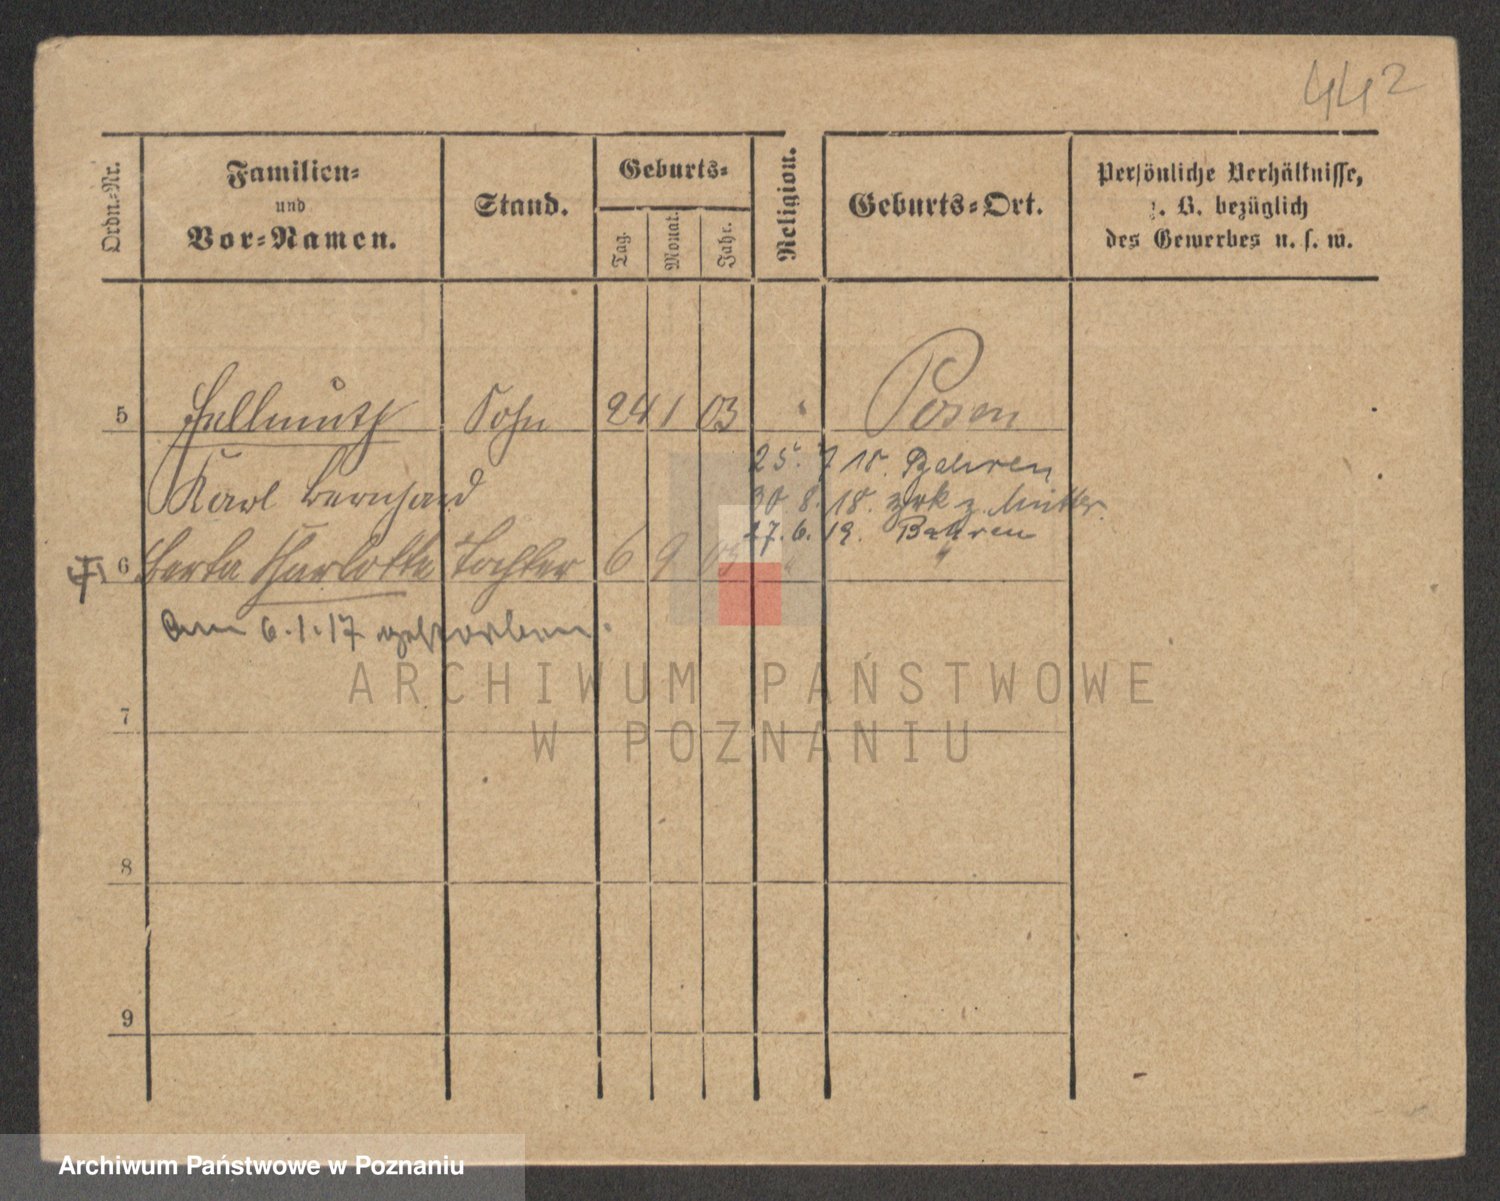 442
Ordn.-Nr.
Familien-
und
Vor-Namen.
Stand.
Geburts-
Tag.
Monat.
Jahr.
Religion.
Geburts-Ort.
Persönliche Verhältnisse,
z. B. bezüglich
des Gewerbes u. s. w.
5 Hellmuth Sohn 24 1 03 " Posen
Karl Bernhard
25. 7 18. Bahren
30 8. 18. zrk z. Mutter.
17. 6. 19. Bahren
6 Berta Charlotte Tochter 6 9 05 " "
Am 6.1.17 gestorben.
7
8
9
ARCHIWUM PAŃSTWOWE
W POZNANIU
Archiwum Państwowe w Poznaniu